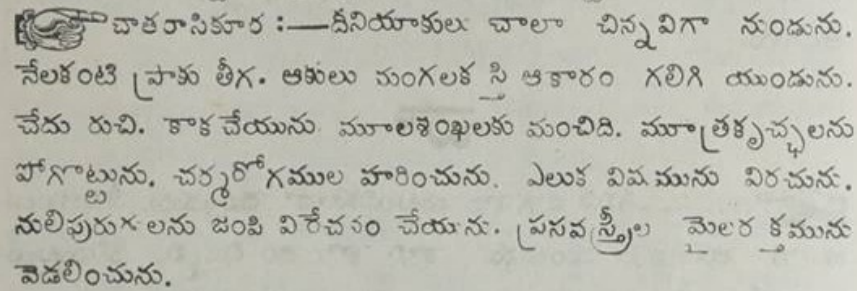 చాతరాసికూర :—దీనియాకులు చాలా చిన్నవిగా నుండును.
నేలకంటి ప్రాకు తీగ. ఆకులు మంగలకత్తి ఆకారం గలిగి యుండును.
చేదు రుచి. కాక చేయును మూలశంఖలకు మంచిది. మూత్రకృచ్ఛలను
పోగొట్టును. చర్మరోగముల హరించును. ఎలుక విషమును విరచును.
నులిపురుగులను జంపి విరేచనం చేయును. ప్రసవస్త్రీల మైలరక్తమును
వెడలించును.